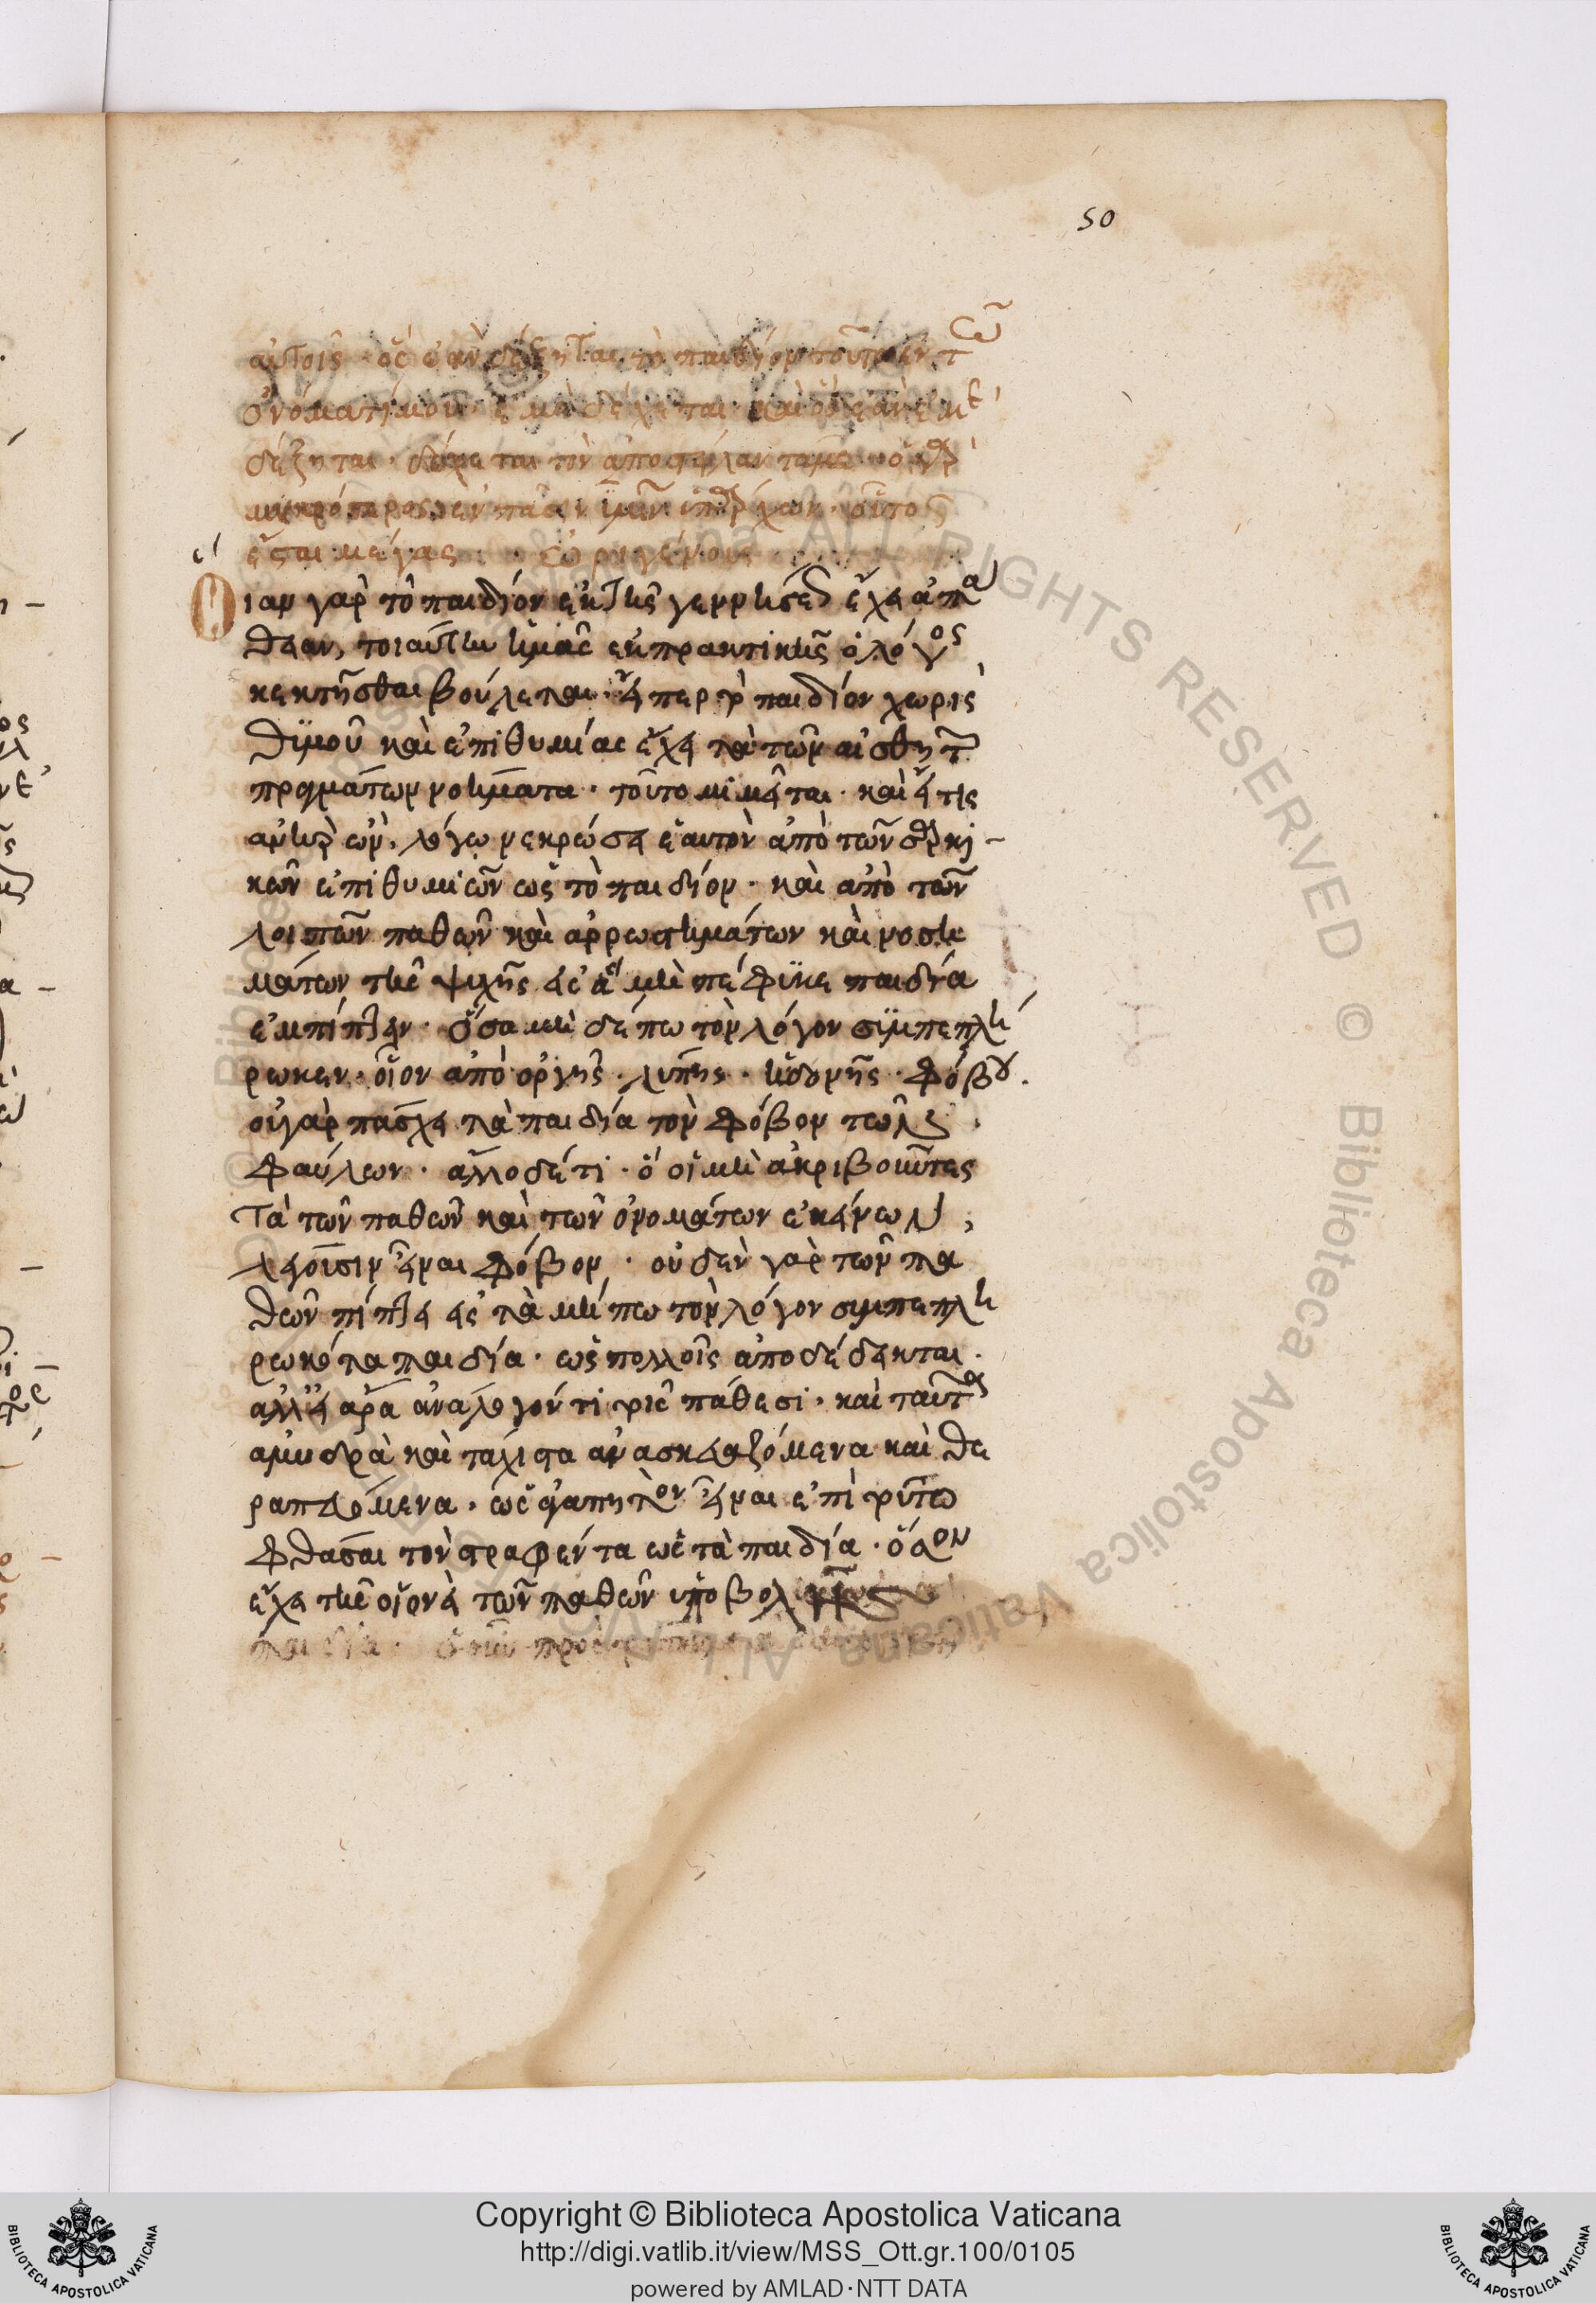 50
αὐτοῖς· ὃς ἐὰν δέξηται τὸ παιδίον τοῦτο ἐν τῶ
ὀνόματί μου· ἐμὲ δέχεται· καὶ ὃς ἐὰν ἐμὲ
δέξηται· δέχεται τὸν ἀποστείλαντά με· ὁ γὰρ
μικρότερος ἐν πᾶσιν ὑμῖν ὑπάρχων· οὗτος
ἔσται μέγας· Ὠριγένους
Οἵαν γὰρ τὸ παιδίον ἐκ τῆς γεννήσεως ἔχει ἀπά
θειαν, τοιαύτην ἡμᾶς ἐκ πρακτικῆς ὁ λόγος
κεκτῆσθαι βούλεται· εἴπερ τὸ παιδίον χωρὶς
θυμοῦ καὶ ἐπιθυμίας ἔχει τὰ τῶν αἰσθητῶν
πραγμάτων νοήματα· τοῦτο μιμεῖται· καὶ εἴ τις
ἀνὴρ ὢν, λόγω νεκρώσει ἑαυτὸν ἀπὸ τῶν σαρκι-
κῶν ἐπιθυμιῶν ὡς τὸ παιδίον· καὶ ἀπὸ τῶν
λοιπῶν παθῶν καὶ ἀρρωστημάτων καὶ νοση
μάτων τῆς ψυχῆς εἰς ἃ μὴ πέφυκε παιδία
ἐμπίπτειν· ὅσα μηδέπω τὸν λόγον συμπεπλή
ρωκεν· οἷον ἀπὸ ὀργῆς· λύπης· ἡδονῆς· φόβου.
οὐ γὰρ πάσχει τὰ παιδία τὸν φόβον τῶν
φαύλων· ἄλλο δέ τι· ὃ οἱ μὴ ἀκριβοῦντες
τὰ τῶν παθῶν καὶ τῶν ὀνομάτων ἐκείνων,
λέγουσιν εἶναι φόβον· οὐδὲν γὰρ τῶν πα
θῶν πίπτει εἰς τὰ μήπω τὸν λόγον συμπεπλη
ρωκότα παιδία· ὡς πολλοῖς ἀποδέδεικται·
ἀλλ' εἰ ἄρα ἀνάλογόν τι τοῖς πάθεσι· καὶ ταῦτα
ἀμυδρὰ καὶ τάχιστα ἀνασκευαζόμενα καὶ θε
ραπευόμενα· ὡς ἀγαπητὸν εἶναι ἐπὶ τοῦτο
φθάσαι τὸν στραφέντα ὡς τὰ παιδία· ὅσον
ἔχει τῆς οἱονεὶ τῶν παθῶν ὑποβολῆς
παιδία·
Copyright © Biblioteca Apostolica Vaticana
http://digi.vatlib.it/view/MSS_Ott.gr.100/0105
powered by AMLAD·NTT DATA